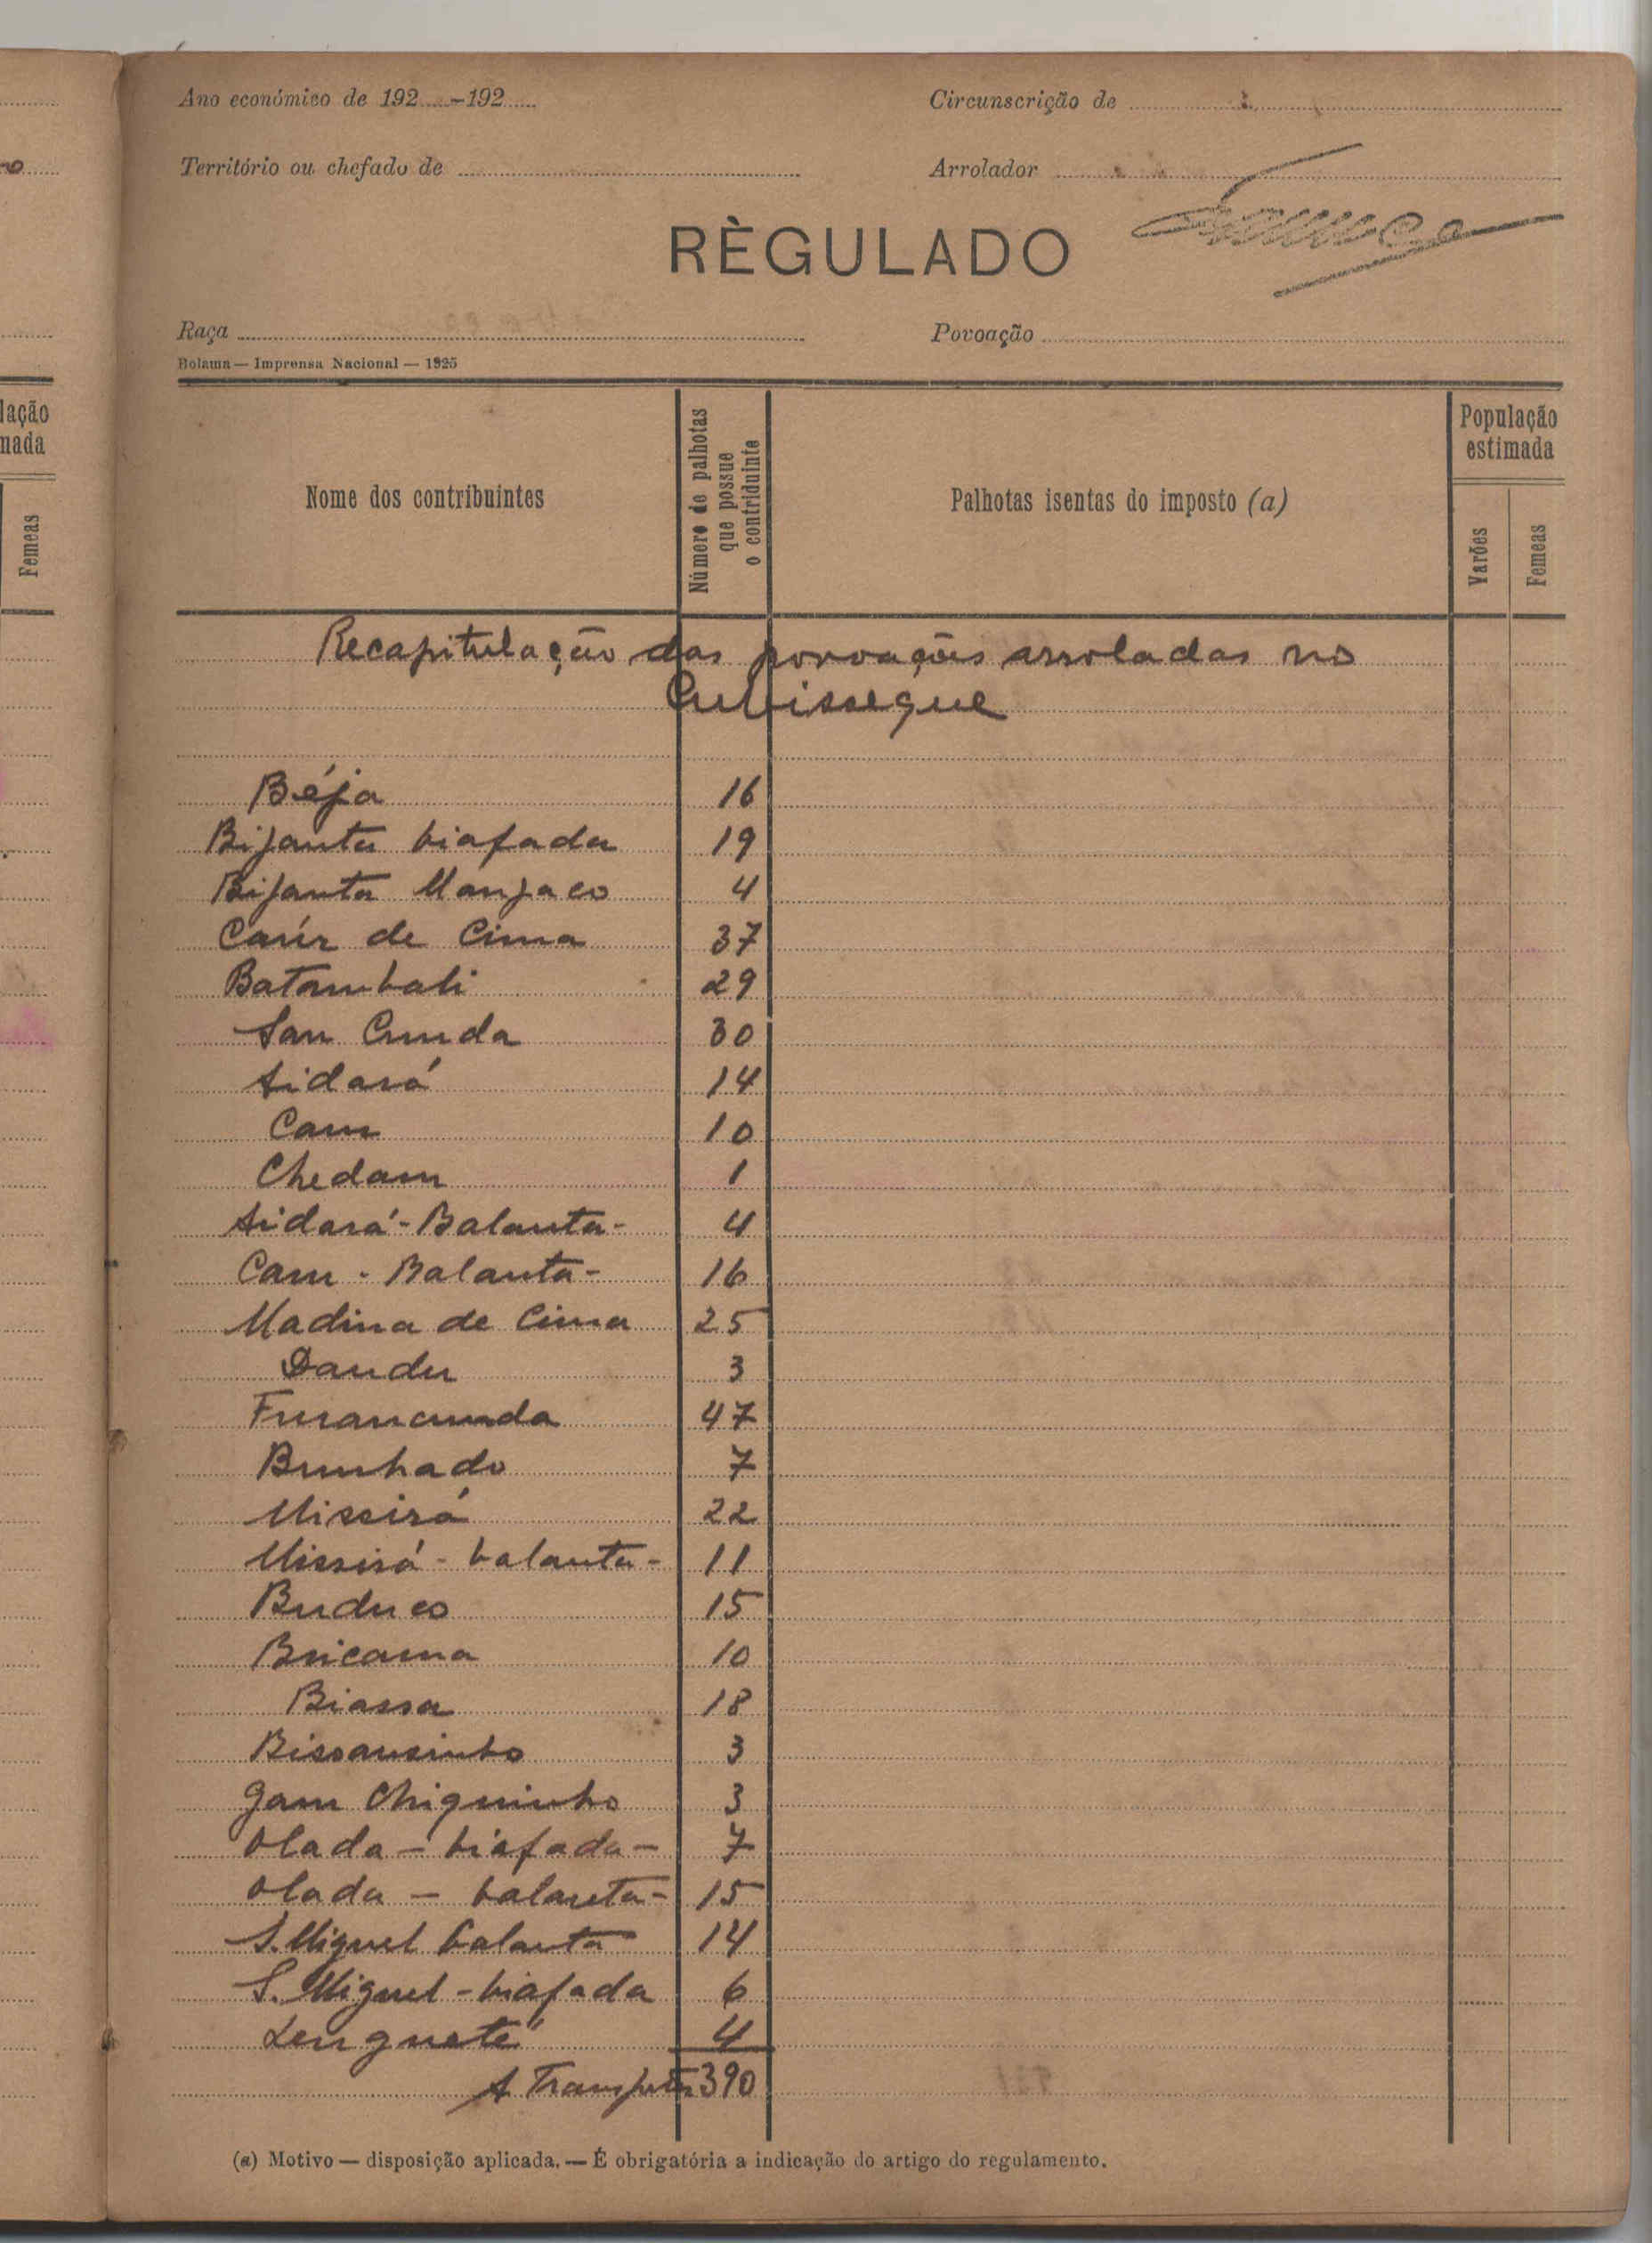 Ano económico de 192 -192
Circunscrição de
Território ou chefado de
Arrolador
RÈGULADO
Raça
Povoação
Bolama — Imprensa Nacional — 1925
lação
nada
Femeas
Nome dos contribuintes
Número de palhotas
que possue
o contriduinte
Palhotas isentas do imposto (a)
População
estimada
Varões
Femeas
Recapitulação das povoações arroladas no
Cubisseque
Béja 16
Bijanta biafada 19
Bijanta Manjaco 4
Caúr de Cima 37
Batambali 29
San Cunda 30
Aidará 14
Cam 10
Chedam 1
Aidará - Balanta - 4
Cam - Balanta - 16
Madina de Cima 25
Dandu 3
Furancunda 47
Bunhado 7
Missirá 22
Missirá - balanta - 11
Buduco 15
Bricama 10
Biassa 18
Bissausinho 3
Gam Chiquinho 3
Olada - biafada - 7
Olada - balanta - 15
S. Miguel balanta 14
S. Miguel - biafada 6
Lengueté 4
A Transportar 390
(a) Motivo — disposição aplicada. — É obrigatória a indicação do artigo do regulamento.